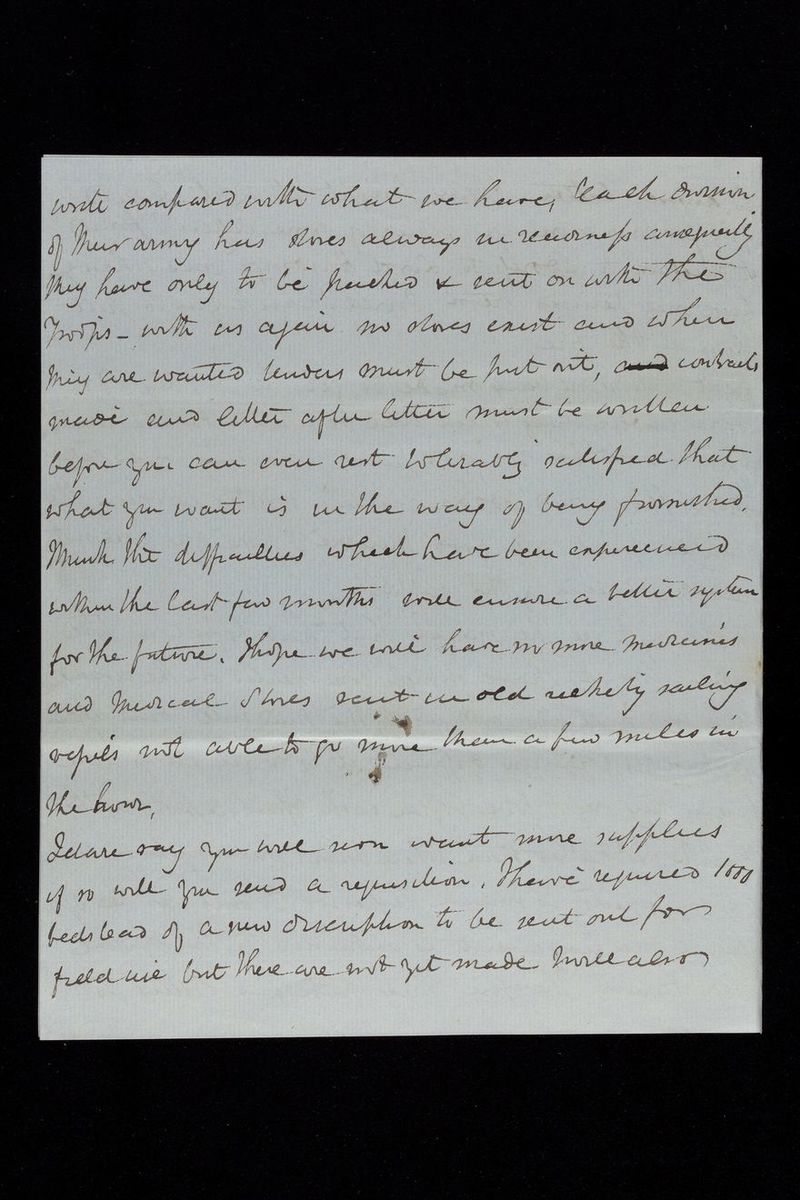 write compared with what we have, each division
of their army has stores always in readiness consequently
they have only to be packed & sent on with the
Troops - with us again no stores exist and when
they are wanted tenders must be put out, and contracts
made and letter after letter must be written
before you can even rest tolerably satisfied that
what you want is in the way of being furnished.
I think the difficulties which have been experienced
within the last few months will ensure a better system
for the future. I hope we will have no more medicines
and Medical Stores sent in old rickety sailing
vessels not able to go more than a few miles in
the hour,
I dare say you will soon want more supplies
if so will you send a requisition. I have required 1000
bedstead of a new description to be sent out for
field use but there are not yet made I will also